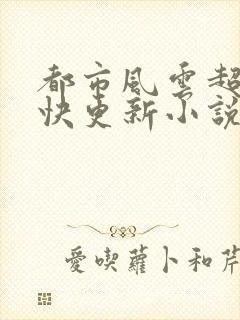 都市風雲超
快更新小說
愛喫蘿卜和芹